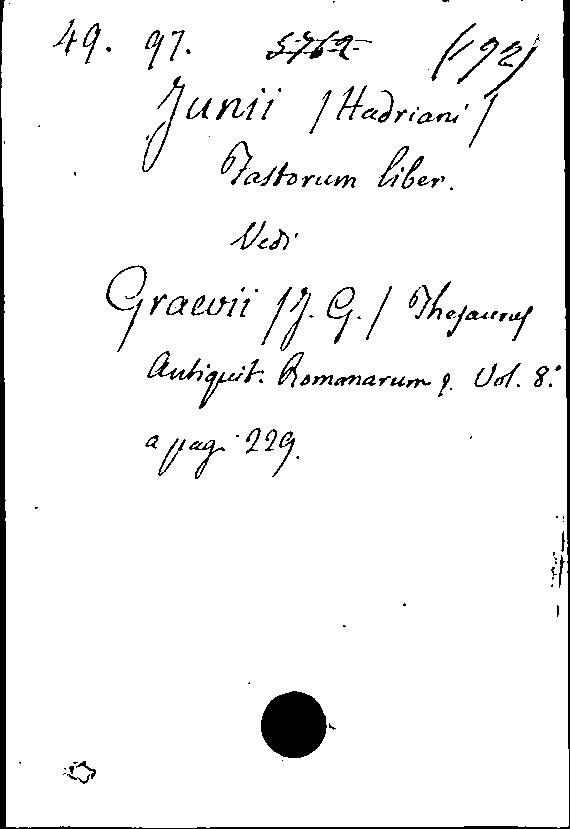 49. 97. 5762 (192)
Junii /Hadriani/
Fastorum liber.
Vedi
Graevii /J. G./ Thesaurus
Antiquit. Romanarum &. Vol. 8.°
a pag. 229.